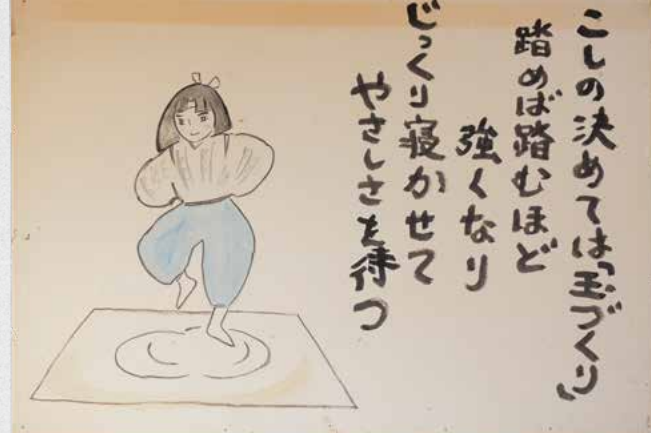 こしの決めては「玉づくり」
踏めば踏むほど
強くなり
じっくり寝かせて
やさしさを待つ